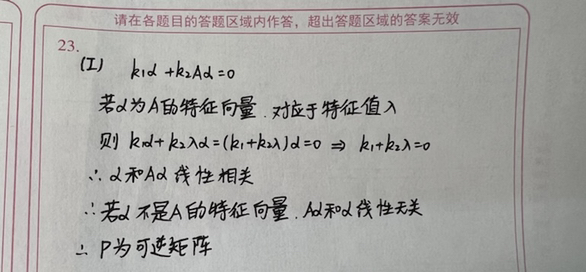 请在各题目的答题区域内作答，超出答题区域的答案无效
23.
(I) k₁α+k₂Aα=0
若α为A的特征向量.对应于特征值λ
则 k₁α+k₂λα=(k₁+k₂λ)α=0 ⇒ k₁+k₂λ=0
∴ α和Aα线性相关
∴若α不是A的特征向量.Aα和α线性无关
∴ P为可逆矩阵